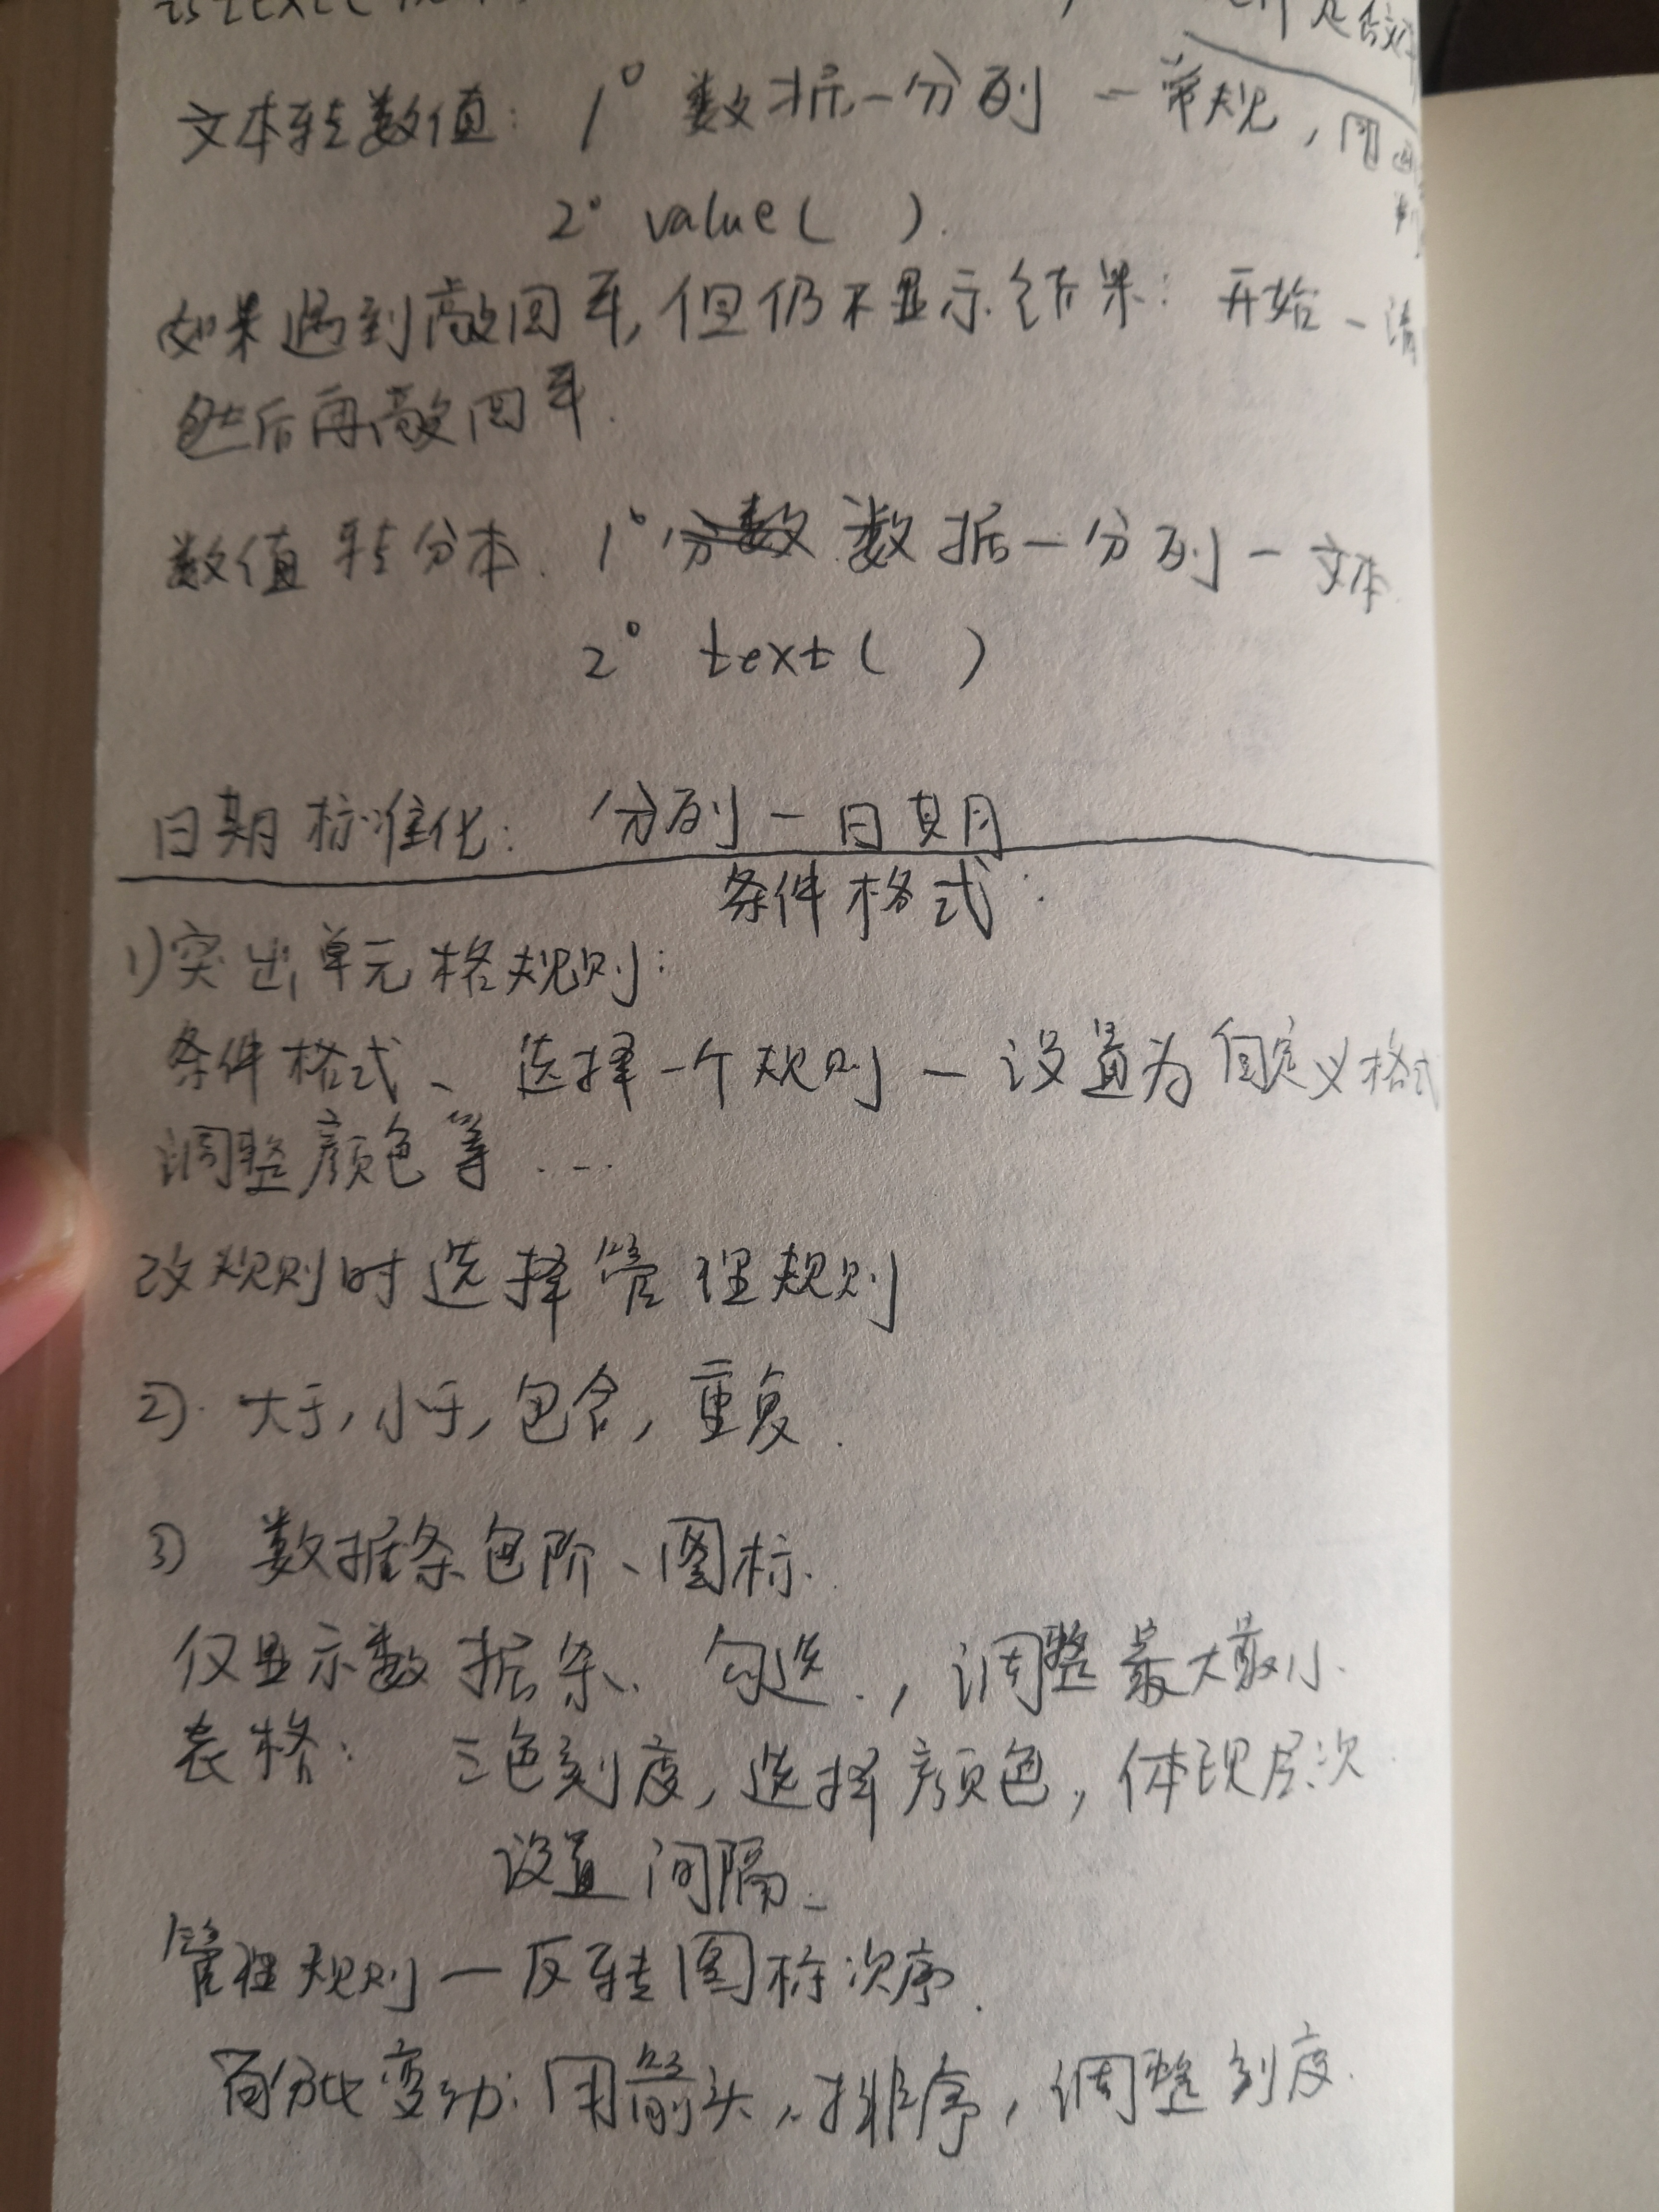 文本转数值: 1° 数据—分列—常规, 用
2° value( ).
如果遇到敲回车,但仍不显示结果: 开始—清
然后再敲回车.
数值转分本. 1° 分数 数据—分列—文本.
2° text( )
日期标准化: 分列—日期
条件格式:
1)突出单元格规则:
条件格式、选择一个规则—设置为自定义格式
调整颜色等...
改规则时选择管理规则
2). 大于,小于,包含,重复.
3) 数据条色阶、图标.
仅显示数据条、勾选., 调整最大最小.
表格: 三色刻度,选择颜色,体现层次.
设置间隔、
管理规则—反转图标次序.
百分比变动:用箭头,排序,调整刻度.